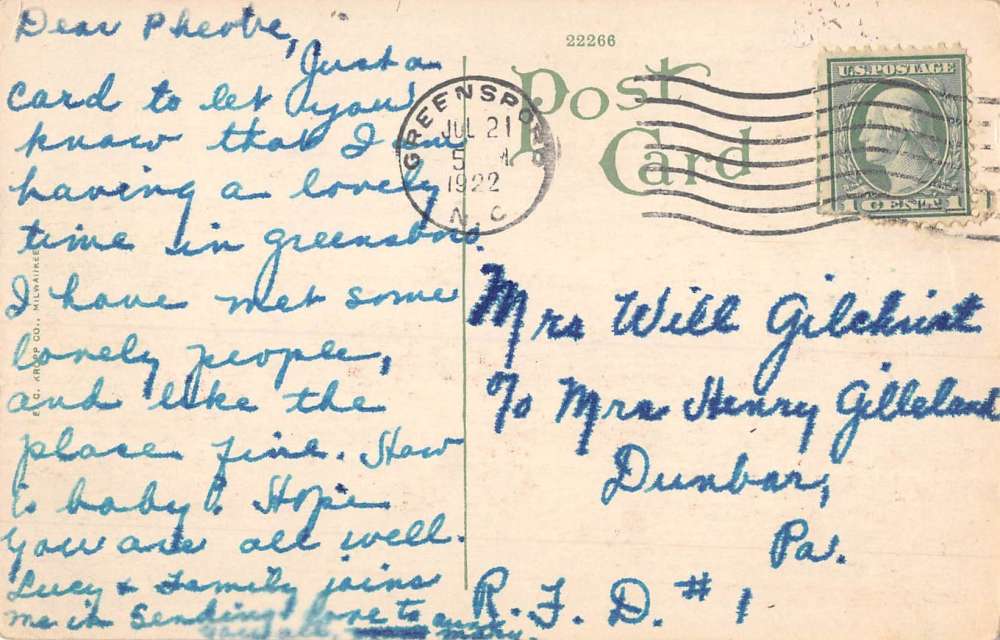 Dear Pheobe,
Just a
card to let you
know that I am
having a lovely
time in greensboro.
I have met some
lovely people,
and like the
place fine. How
is baby? Hope
you are all well.
Lucy & Family joins
me in sending love to
you all, Mary.
E. C. KROPP CO., MILWAUKEE
22266
Post
Card
GREENSBORO
JUL 21
5
1922
N. C
U.S. POSTAGE
1 CENT 1
Mrs Will Gilchrist
c/o Mrs Henry Gilleland
Dunbar,
Pa.
R. F. D. # 1